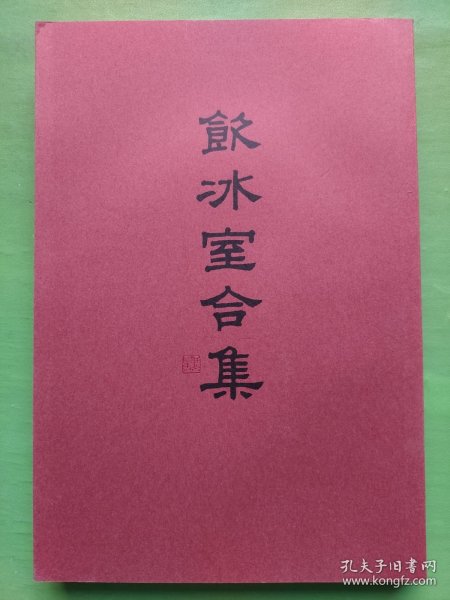 飲冰室合集
孔夫子旧书网
www.kongfz.com